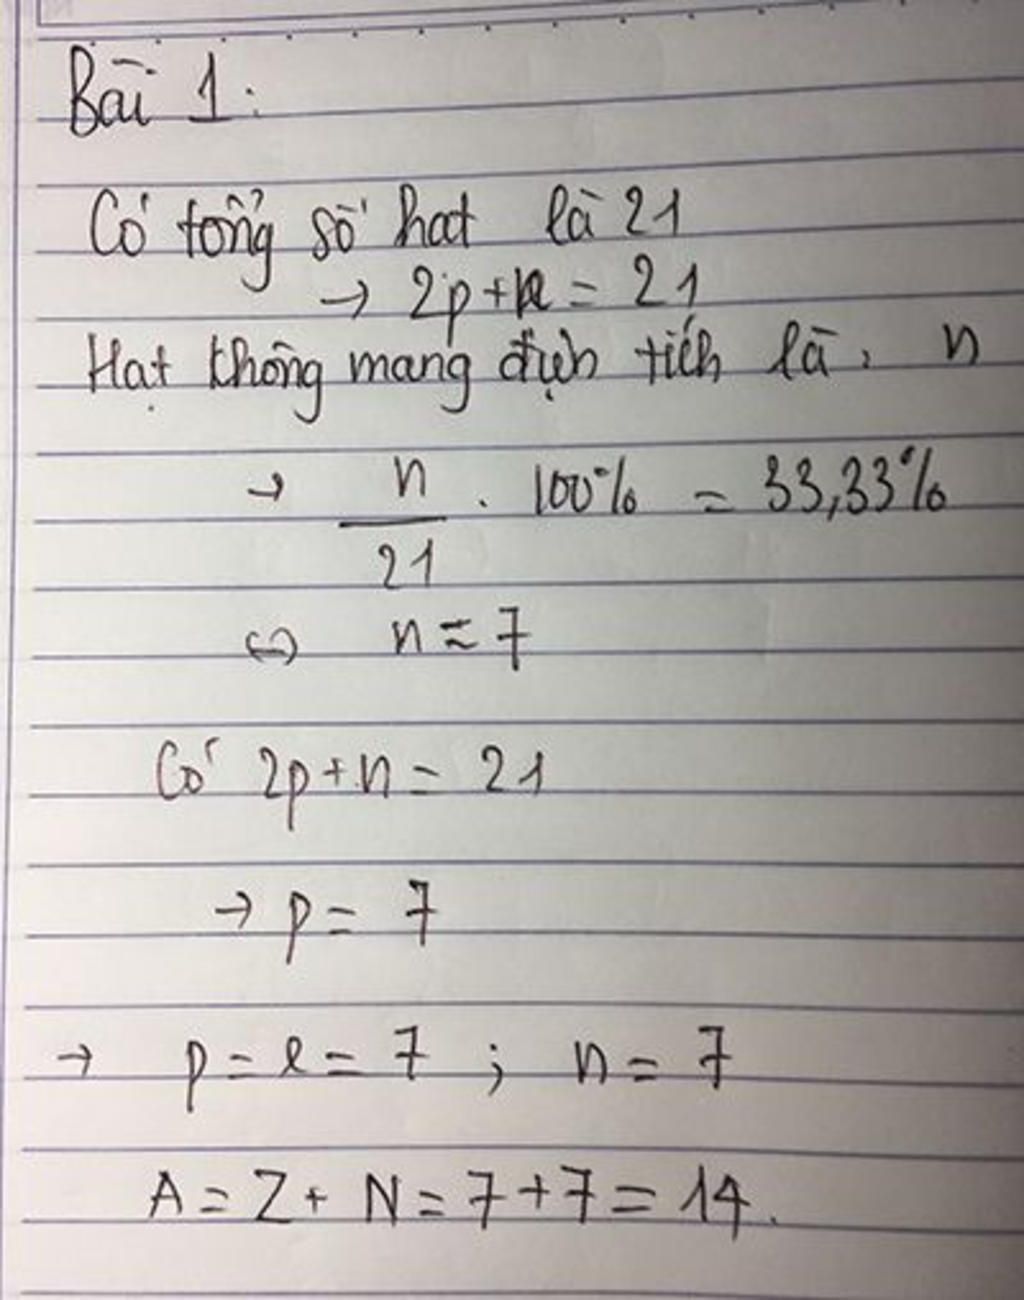 Bài 1:
Có tổng số hat là 21
→ 2p+n = 21
Hạt không mang điện tích là: n
→ n/21 . 100% = 33,33%
⇔ n ≈ 7
Có 2p+n = 21
→ p = 7
→ p = e = 7 ; n = 7
A = Z + N = 7+7 = 14.